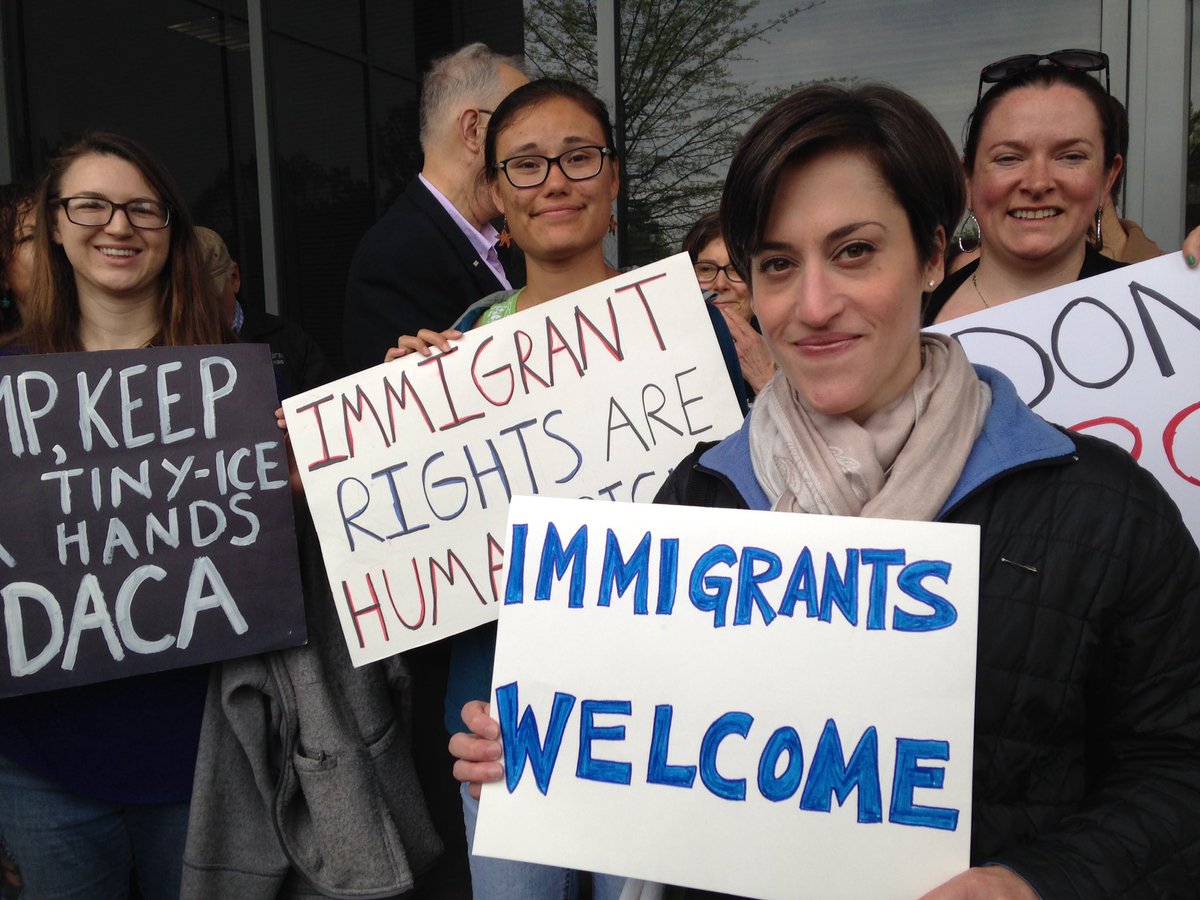 MP, KEEP
TINY-ICE
HANDS
DACA
IMMIGRANT
RIGHTS ARE
HUMA
IMMIGRANTS
WELCOME
DON